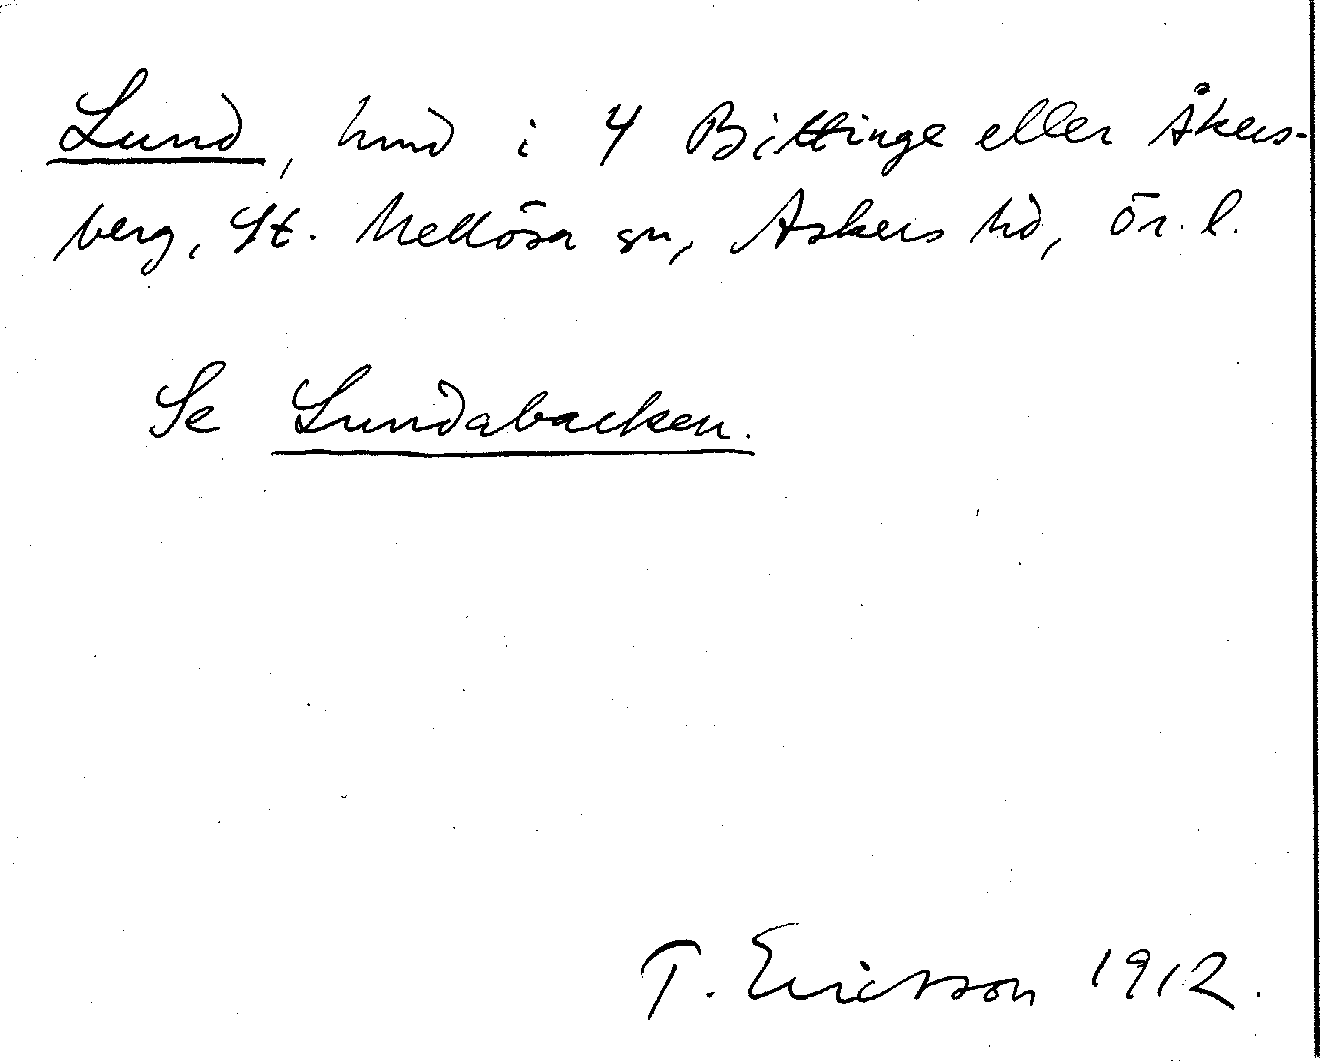 Lund, hmd i 4 Bittinge eller Åkers-
berg, St. Mellösa sn, Askers hd, Ör. l.
Se Lundabacken.
T. Ericsson 1912.